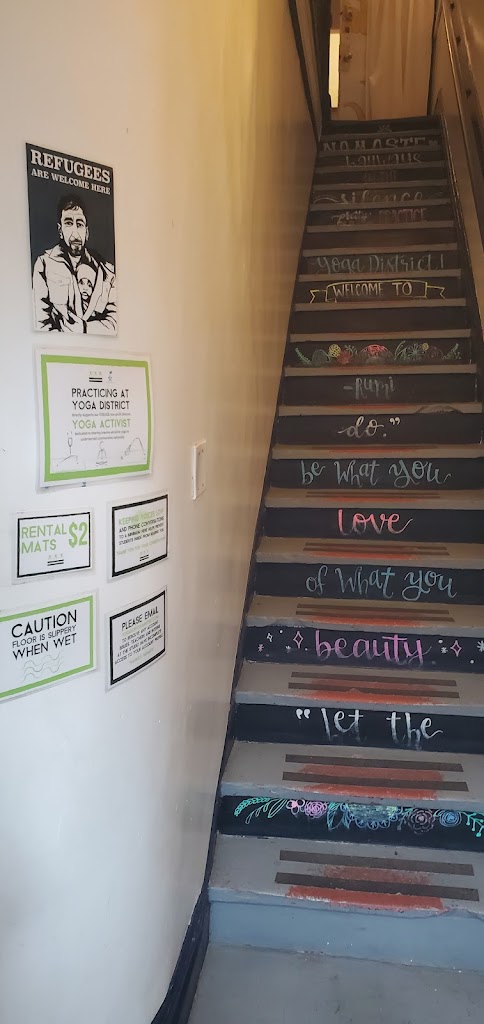 REFUGEES
ARE WELCOME HERE
PRACTICING AT
YOGA DISTRICT
YOGA ACTIVIST
RENTAL
MATS $2
AND PHONE CONVERSATIONS
TO A MINIMUM
CAUTION
FLOOR IS SLIPPERY
WHEN WET
PLEASE EMAIL
NAMASTE
silence
PRACTICE
Yoga District!
WELCOME TO
-Rumi
do."
be What you
love
of What you
beauty
"let the